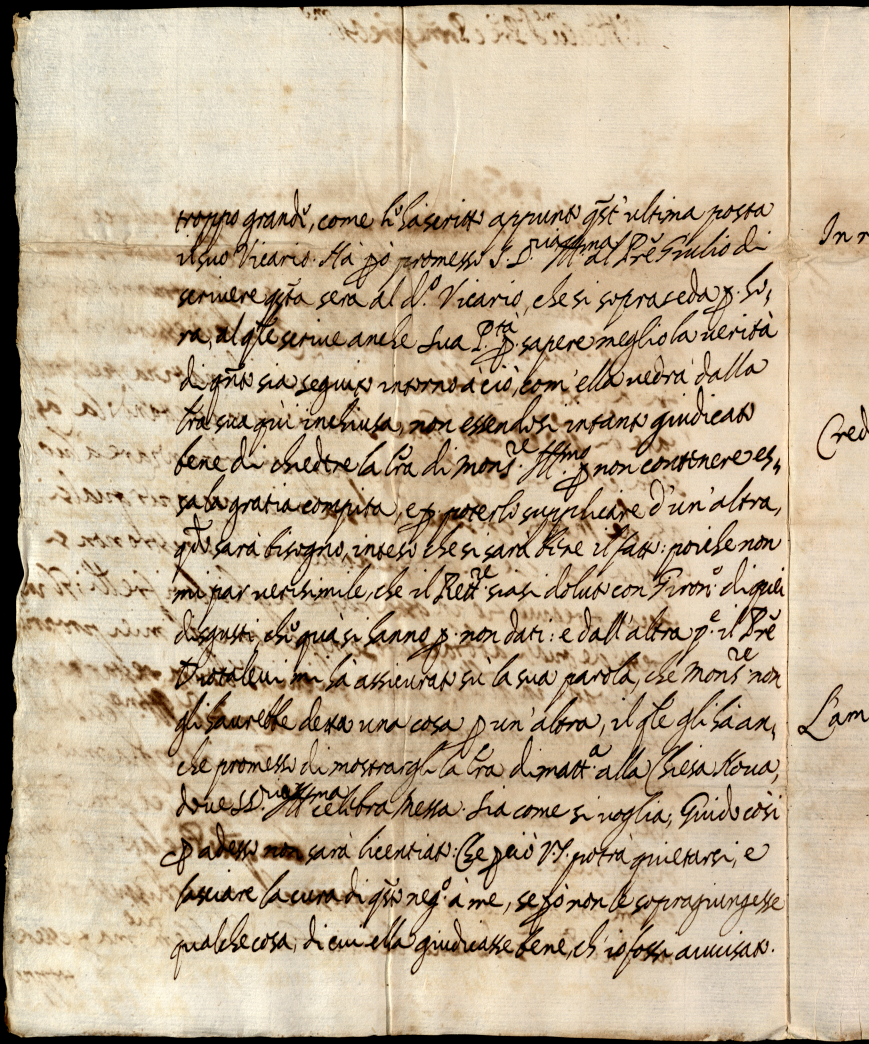 troppo grande, come le hà scritto appunto q̃st' ultima posta
il suo Vicario. Hà p̱ò promesso S. S. Ill.ma al Prẽ Giulio di
scrivere q̃sta sera al d.o Vicario, che si sopraseda p̱ ho„
ra, al q̃le scrive anche sua P.tà p̱ sapere meglio la verità
di q̃nto sia seguito intorno à ciò, com' ella vedrà dalla
lr̃a sua qùi inchiusa, non essendosi intanto giudicato
bene di chiedere la lr̃a di Mons.re Ill.mo p̱ non contenere es„
sa la gratia compita, e p̱ poterlo supplicare d'un'altra,
q̃do sarà bisogno, inteso che si sarà bene il fatto: poiche non
mi par verisimile, che il Rett.re siasi doluto con Giron.o di quei
disgusti, che quà si hanno p̱ non dati: e dall'altra p.e il Prẽ
Diotalevi mi hà assicurato sù la sua parola, che Mons.re non
gli haurebbe detta una cosa p̱ un'altra, il q̃le gli hà an„
che promesso di mostrargli la lr̃a di matt.a alla Chiesa Nova,
dove S. S. Ill.ma celebra Messa. Sia come si voglia, Guido così
p̱ adesso non sarà licentiato: Che p̱ciò V. S. potrà quietarsi, e
lasciare la cura di q̃sto neg.o à me, se p̱ò non le sopragiungesse
qualche cosa, di cui ella giudicasse bene, ch' io fossi avvisato.
In r
Cred
L'am